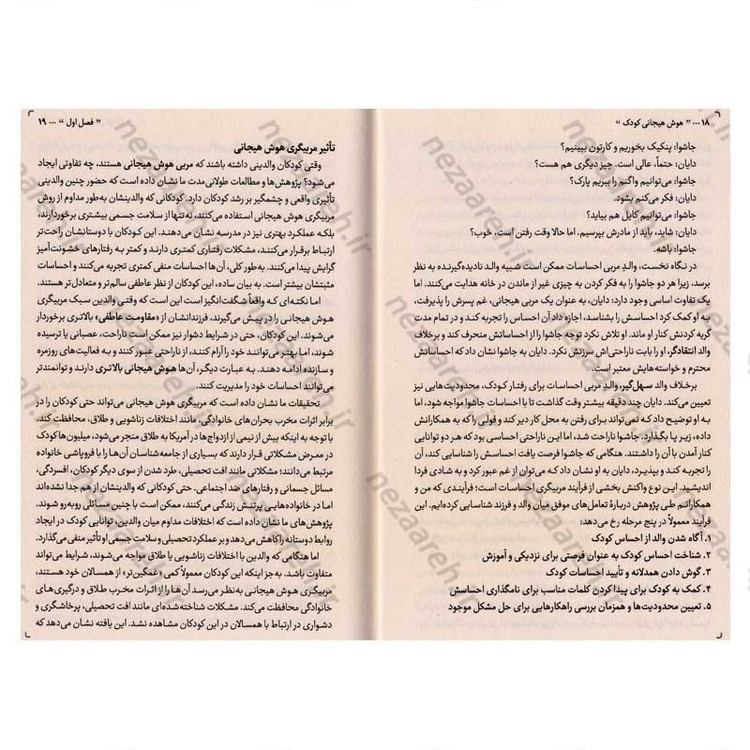 ۱۸ ... " هوش هیجانی کودک "
جاشوا: پنکیک بخوریم و کارتون ببینیم؟
دایان: حتماً، عالی است. چیز دیگری هم هست؟
جاشوا: می‌توانیم واگنم را ببریم پارک؟
دایان: فکر می‌کنم بشود.
جاشوا: می‌توانیم کایل هم بیاید؟
دایان: شاید، باید از مادرش بپرسیم. اما حالا وقت رفتن است، خوب؟
جاشوا: باشه.
در نگاه نخست، والدِ مربی احساسات ممکن است شبیه والد نادیده‌گیرنده به نظر
برسد، زیرا هر دو جاشوا را به فکر کردن به چیزی غیر از ماندن در خانه هدایت می‌کنند. اما
یک تفاوت اساسی وجود دارد: دایان، به عنوان یک مربی هیجانی، غم پسرش را پذیرفت،
به او کمک کرد احساسش را بشناسد، اجازه داد آن احساس را تجربه کند و در تمام مدت
گریه کردنش کنار او ماند. او تلاش نکرد توجه جاشوا را از احساساتش منحرف کند و برخلاف
والد انتقادگر، او را بابت ناراحتی‌اش سرزنش نکرد. دایان به جاشوا نشان داد که احساساتش
محترم و خواسته‌هایش معتبر است.
برخلاف والد سهل‌گیر، والدِ مربی احساسات برای رفتار کودک، محدودیت‌هایی نیز
تعیین می‌کند. دایان چند دقیقه بیشتر وقت گذاشت تا با احساسات جاشوا مواجه شود، اما
به او توضیح داد که نمی‌تواند برای رفتن به محل کار دیر کند و قولی را که به همکارانش
داده، زیر پا بگذارد. جاشوا ناراحت شد، اما این ناراحتی احساسی بود که هر دو توانایی
کنار آمدن با آن را داشتند. هنگامی که جاشوا فرصت یافت احساسش را شناسایی کند، آن
را تجربه کند و بپذیرد، دایان به او نشان داد که می‌توان از غم عبور کرد و به شادی فردا
اندیشید. این نوع واکنش بخشی از فرآیند مربیگری احساسات است؛ فرآیندی که من و
همکارانم طی پژوهش دربارهٔ تعامل‌های موفق میان والد و فرزند شناسایی کرده‌ایم. این
فرآیند معمولاً در پنج مرحله رخ می‌دهد:
۱. آگاه شدن والد از احساس کودک
۲. شناخت احساس کودک به عنوان فرصتی برای نزدیکی و آموزش
۳. گوش دادن همدلانه و تأیید احساسات کودک
۴. کمک به کودک برای پیدا کردن کلمات مناسب برای نامگذاری احساسش
۵. تعیین محدودیت‌ها و همزمان بررسی راهکارهایی برای حل مشکل موجود
" فصل اول " ... ۱۹
تأثیر مربیگری هوش هیجانی
وقتی کودکان والدینی داشته باشند که مربی هوش هیجانی هستند، چه تفاوتی ایجاد
می‌شود؟ پژوهش‌ها و مطالعات طولانی‌مدت ما نشان داده است که حضور چنین والدینی
تأثیری واقعی و چشمگیر بر رشد کودکان دارد. کودکانی که والدینشان به‌طور مداوم از روش
مربیگری هوش هیجانی استفاده می‌کنند، نه‌تنها از سلامت جسمی بیشتری برخوردارند،
بلکه عملکرد بهتری نیز در مدرسه نشان می‌دهند. این کودکان با دوستانشان راحت‌تر
ارتباط برقرار می‌کنند، مشکلات رفتاری کمتری دارند و کمتر به رفتارهای خشونت‌آمیز
گرایش پیدا می‌کنند. به‌طور کلی، آن‌ها احساسات منفی کمتری تجربه می‌کنند و احساسات
مثبتشان بیشتر است. به بیان ساده، این کودکان از نظر عاطفی سالم‌تر و متعادل‌تر هستند.
اما نکته‌ای که واقعاً شگفت‌انگیز است این است که وقتی والدین سبک مربیگری
هوش هیجانی را در پیش می‌گیرند، فرزندانشان از «مقاومت عاطفی» بالاتری برخوردار
می‌شوند. این کودکان، حتی در شرایط دشوار نیز ممکن است ناراحت، عصبانی یا ترسیده
شوند، اما بهتر می‌توانند خود را آرام کنند، از ناراحتی عبور کنند و به فعالیت‌های روزمره
و سازنده ادامه دهند. به عبارت دیگر، آن‌ها هوش هیجانی بالاتری دارند و توانمندتر
می‌توانند احساسات خود را مدیریت کنند.
تحقیقات ما نشان داده است که مربیگری هوش هیجانی می‌تواند حتی کودکان را در
برابر اثرات مخرب بحران‌های خانوادگی، مانند اختلافات زناشویی و طلاق، محافظت کند.
با توجه به اینکه بیش از نیمی از ازدواج‌ها در آمریکا به طلاق منجر می‌شود، میلیون‌ها کودک
در معرض مشکلاتی قرار دارند که بسیاری از جامعه‌شناسان آن‌ها را با فروپاشی خانواده
مرتبط می‌دانند؛ مشکلاتی مانند افت تحصیلی، طرد شدن از سوی دیگر کودکان، افسردگی،
مسائل جسمانی و رفتارهای ضد اجتماعی. حتی کودکانی که والدینشان از هم جدا نشده‌اند
اما در خانواده‌هایی پرتنش زندگی می‌کنند، ممکن است با چنین مسائلی روبه‌رو شوند.
پژوهش‌های ما نشان داده است که اختلافات مداوم میان والدین، توانایی کودک در ایجاد
روابط دوستانه را کاهش می‌دهد و بر عملکرد تحصیلی و سلامت جسمی او تأثیر منفی می‌گذارد.
اما هنگامی که والدین با اختلافات زناشویی یا طلاق مواجه می‌شوند، شرایط می‌تواند
متفاوت باشد. به‌جز اینکه این کودکان معمولاً کمی «غمگین‌تر» از همسالان خود هستند،
مربیگری هوش هیجانی به‌نظر می‌رسد آن‌ها را از اثرات مخرب طلاق و درگیری‌های
خانوادگی محافظت می‌کند. مشکلات شناخته‌شده‌ای مانند افت تحصیلی، پرخاشگری و
دشواری در ارتباط با همسالان در این کودکان مشاهده نشد. این یافته نشان می‌دهد که
nezaareh.ir